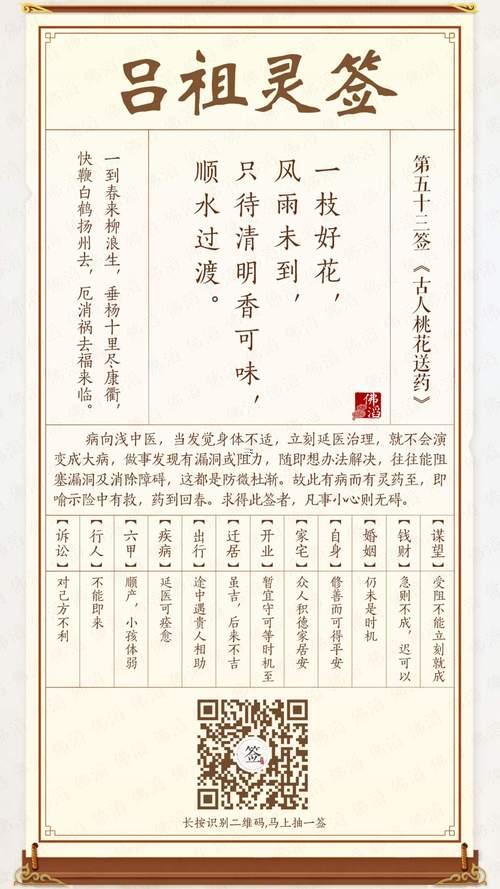 吕祖灵签
第五十三签《古人桃花送药》
一枝好花，
风雨未到，
只待清明香可味，
顺水过渡。
一到春来柳浪生，垂杨十里尽康衢，
快鞭白鹤扬州去，厄消祸去福来临。
佛滔
病向浅中医，当发觉身体不适，立刻延医治理，就不会演
变成大病，做事发现有漏洞或阻力，随即想办法解决，往往能阻
塞漏洞及消除障碍，这都是防微杜渐。故此有病而有灵药至，即
喻示险中有救，药到回春。求得此签者，凡事小心则无碍。
【谋望】受阻不能立刻就成
【钱财】急则不成，迟可以
【婚姻】仍未是时机
【自身】修善而可得平安
【家宅】众人积德家居安
【开业】暂宜守可等时机至
【迁居】虽吉，后来不吉
【出行】途中遇贵人相助
【疾病】延医可痊愈
【六甲】顺产，小孩体弱
【行人】不能即来
【诉讼】对己方不利
签
长按识别二维码,马上抽一签